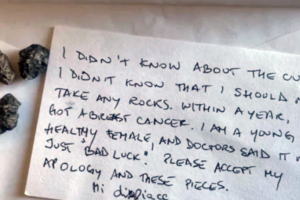 I DIDN'T KNOW ABOUT THE CU
I DIDN'T KNOW THAT I SHOULD
TAKE ANY ROCKS. WITHIN A YEAR,
GOT A BREAST CANCER. I AM A YOUNG
HEALTHY FEMALE, AND DOCTORS SAID IT
JUST "BAD LUCK". PLEASE ACCEPT MY
APOLOGY AND THESE PIECES.
Mi dispiace